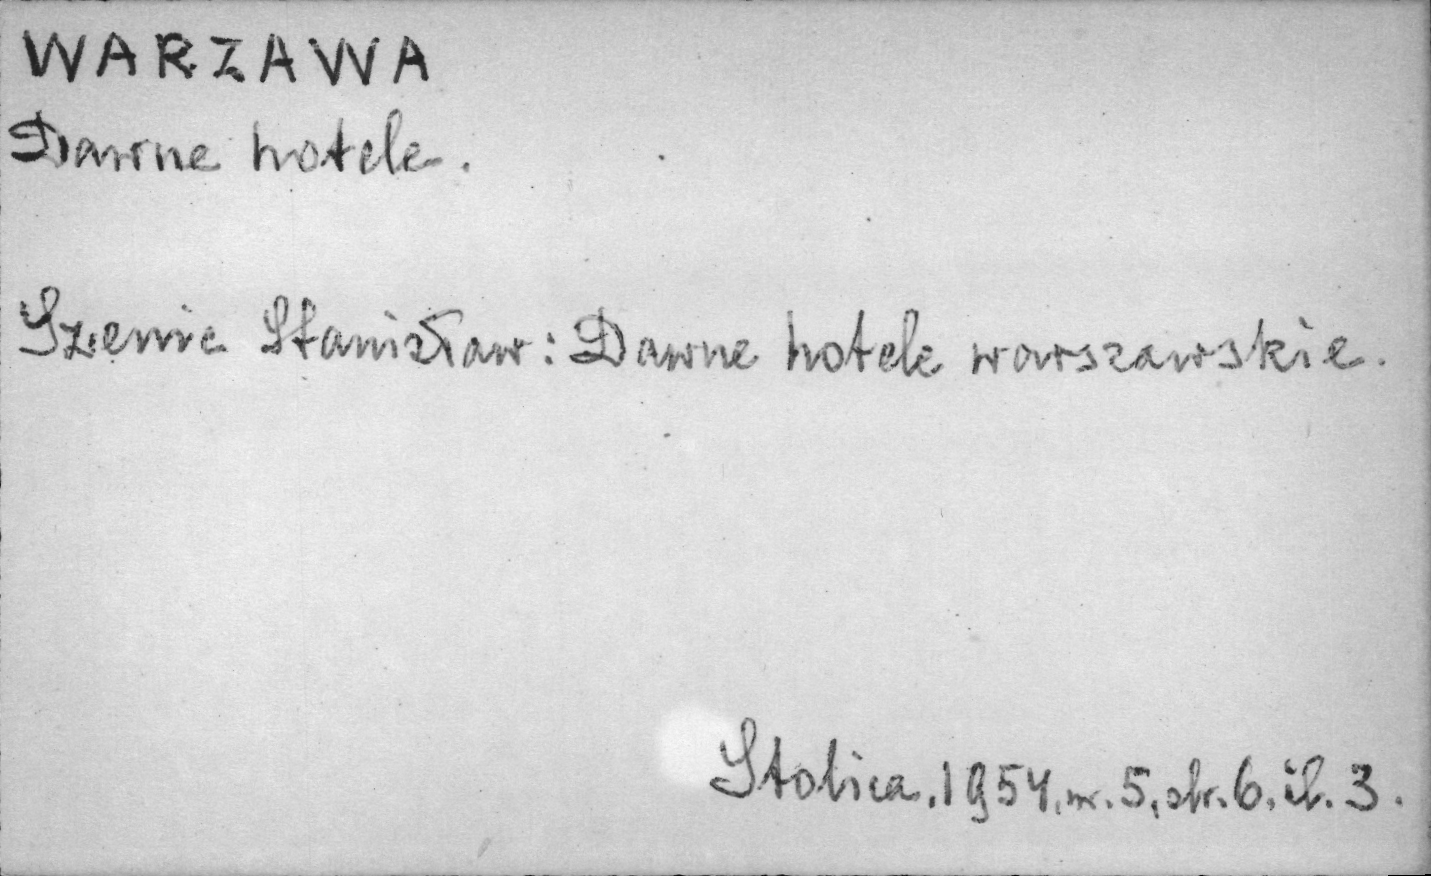 WARZAWA
Dawne hotele.
Szenic Stanisław: Dawne hotele warszawskie.
Stolica, 1954, nr. 5, str. 6, il. 3.